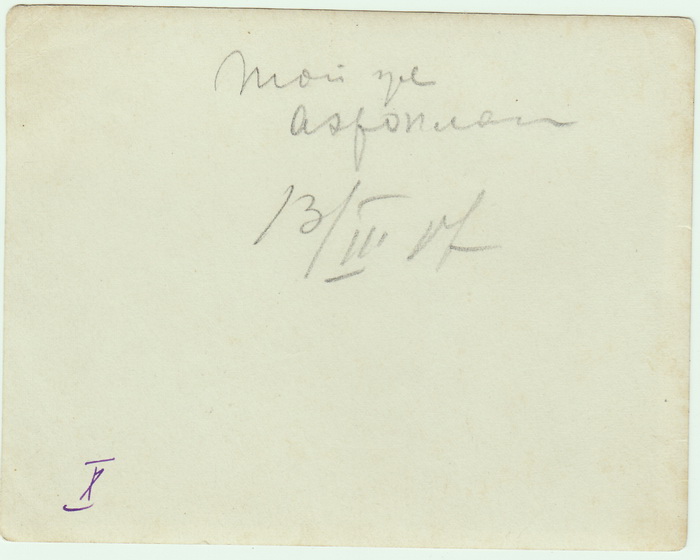 Той же
Аэроплан
13/III 17
X